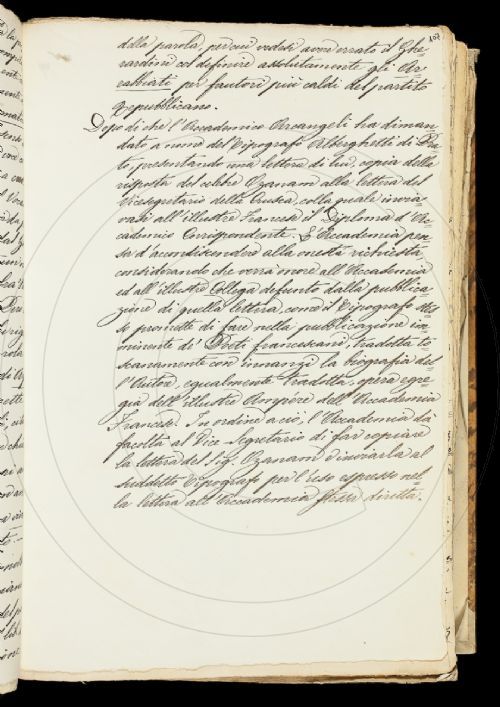 102
della parola, per cui vedesi avere errato il Ghe=
rardini col definire assolutamente gli Ar=
rabbiati per fautori più caldi del partito
Repubblicano.
Dopo di che l'Accademico Arcangeli ha diman=
dato a nome del Tipografo Alberghetti di Pra=
to, presentando una lettera di lui, copia della
risposta del celebre Ozanam alla lettera del
Vicesegretario della Crusca, colla quale invia=
vasi all'illustre Francese il Diploma d'Ac=
cademico Corrispondente. L'Accademia pen=
sa d'accondiscendere alla onesta richiesta,
considerando che verrà onore all'Accademia
ed all'illustre Collega defunto dalla pubblica=
zione di quella lettera, come il Tipografo stes=
so promette di fare nella pubblicazione im=
minente de' Poeti francescani, tradotta to=
scanamente con innanzi la biografia del=
l'Autore, egualmente tradotta, opera egre=
gia dell'illustre Ampère dell'Accademia
Francese. In ordine a ciò, l'Accademia dà
facoltà al Vice Segretario di far copiare
la lettera del Sig. Ozanam d'inviarla al
suddetto Tipografo per l'uso espresso nel=
la lettera all'Accademia stessa diretta.